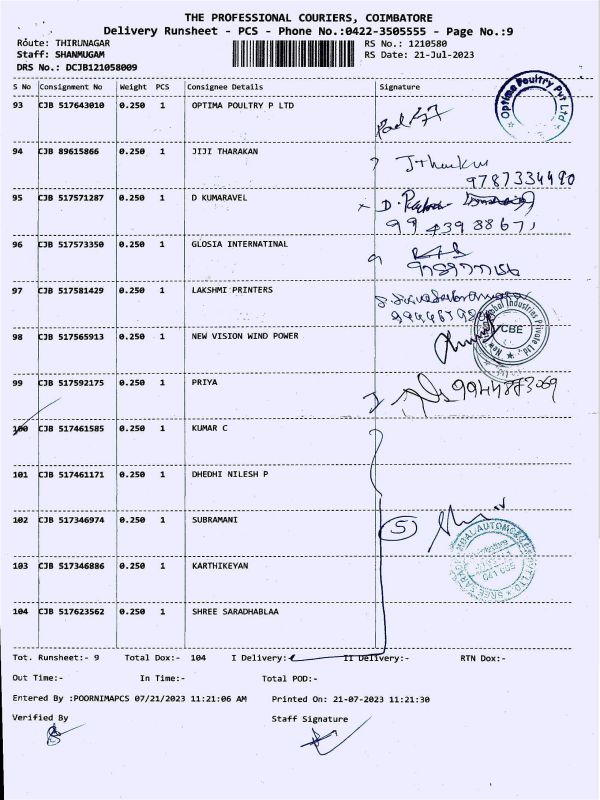 THE PROFESSIONAL COURIERS, COIMBATORE
Delivery Runsheet - PCS - Phone No.:0422-3505555 - Page No.:9
Route: THIRUNAGAR RS No.: 1210580
Staff: SHANMUGAM RS Date: 21-Jul-2023
DRS No.: DCJB121058009
S No Consignment No Weight PCS Consignee Details Signature
93 CJB 517643010 0.250 1 OPTIMA POULTRY P LTD
Optima Poultry Pvt Ltd
94 CJB 89615866 0.250 1 JIJI THARAKAN
9787334490
95 CJB 517571287 0.250 1 D KUMARAVEL
9943988671
96 CJB 517573350 0.250 1 GLOSIA INTERNATINAL
97 CJB 517581429 0.250 1 LAKSHMI PRINTERS
98 CJB 517565913 0.250 1 NEW VISION WIND POWER
CBE
99 CJB 517592175 0.250 1 PRIYA
9944873069
100 CJB 517461585 0.250 1 KUMAR C
101 CJB 517461171 0.250 1 DHEDHI NILESH P
102 CJB 517346974 0.250 1 SUBRAMANI
5
103 CJB 517346886 0.250 1 KARTHIKEYAN
104 CJB 517623562 0.250 1 SHREE SARADHABLAA
Tot. Runsheet:- 9 Total Dox:- 104 I Delivery:- II Delivery:- RTN Dox:-
Out Time:- In Time:- Total POD:-
Entered By :POORNIMAPCS 07/21/2023 11:21:06 AM Printed On: 21-07-2023 11:21:30
Verified By Staff Signature